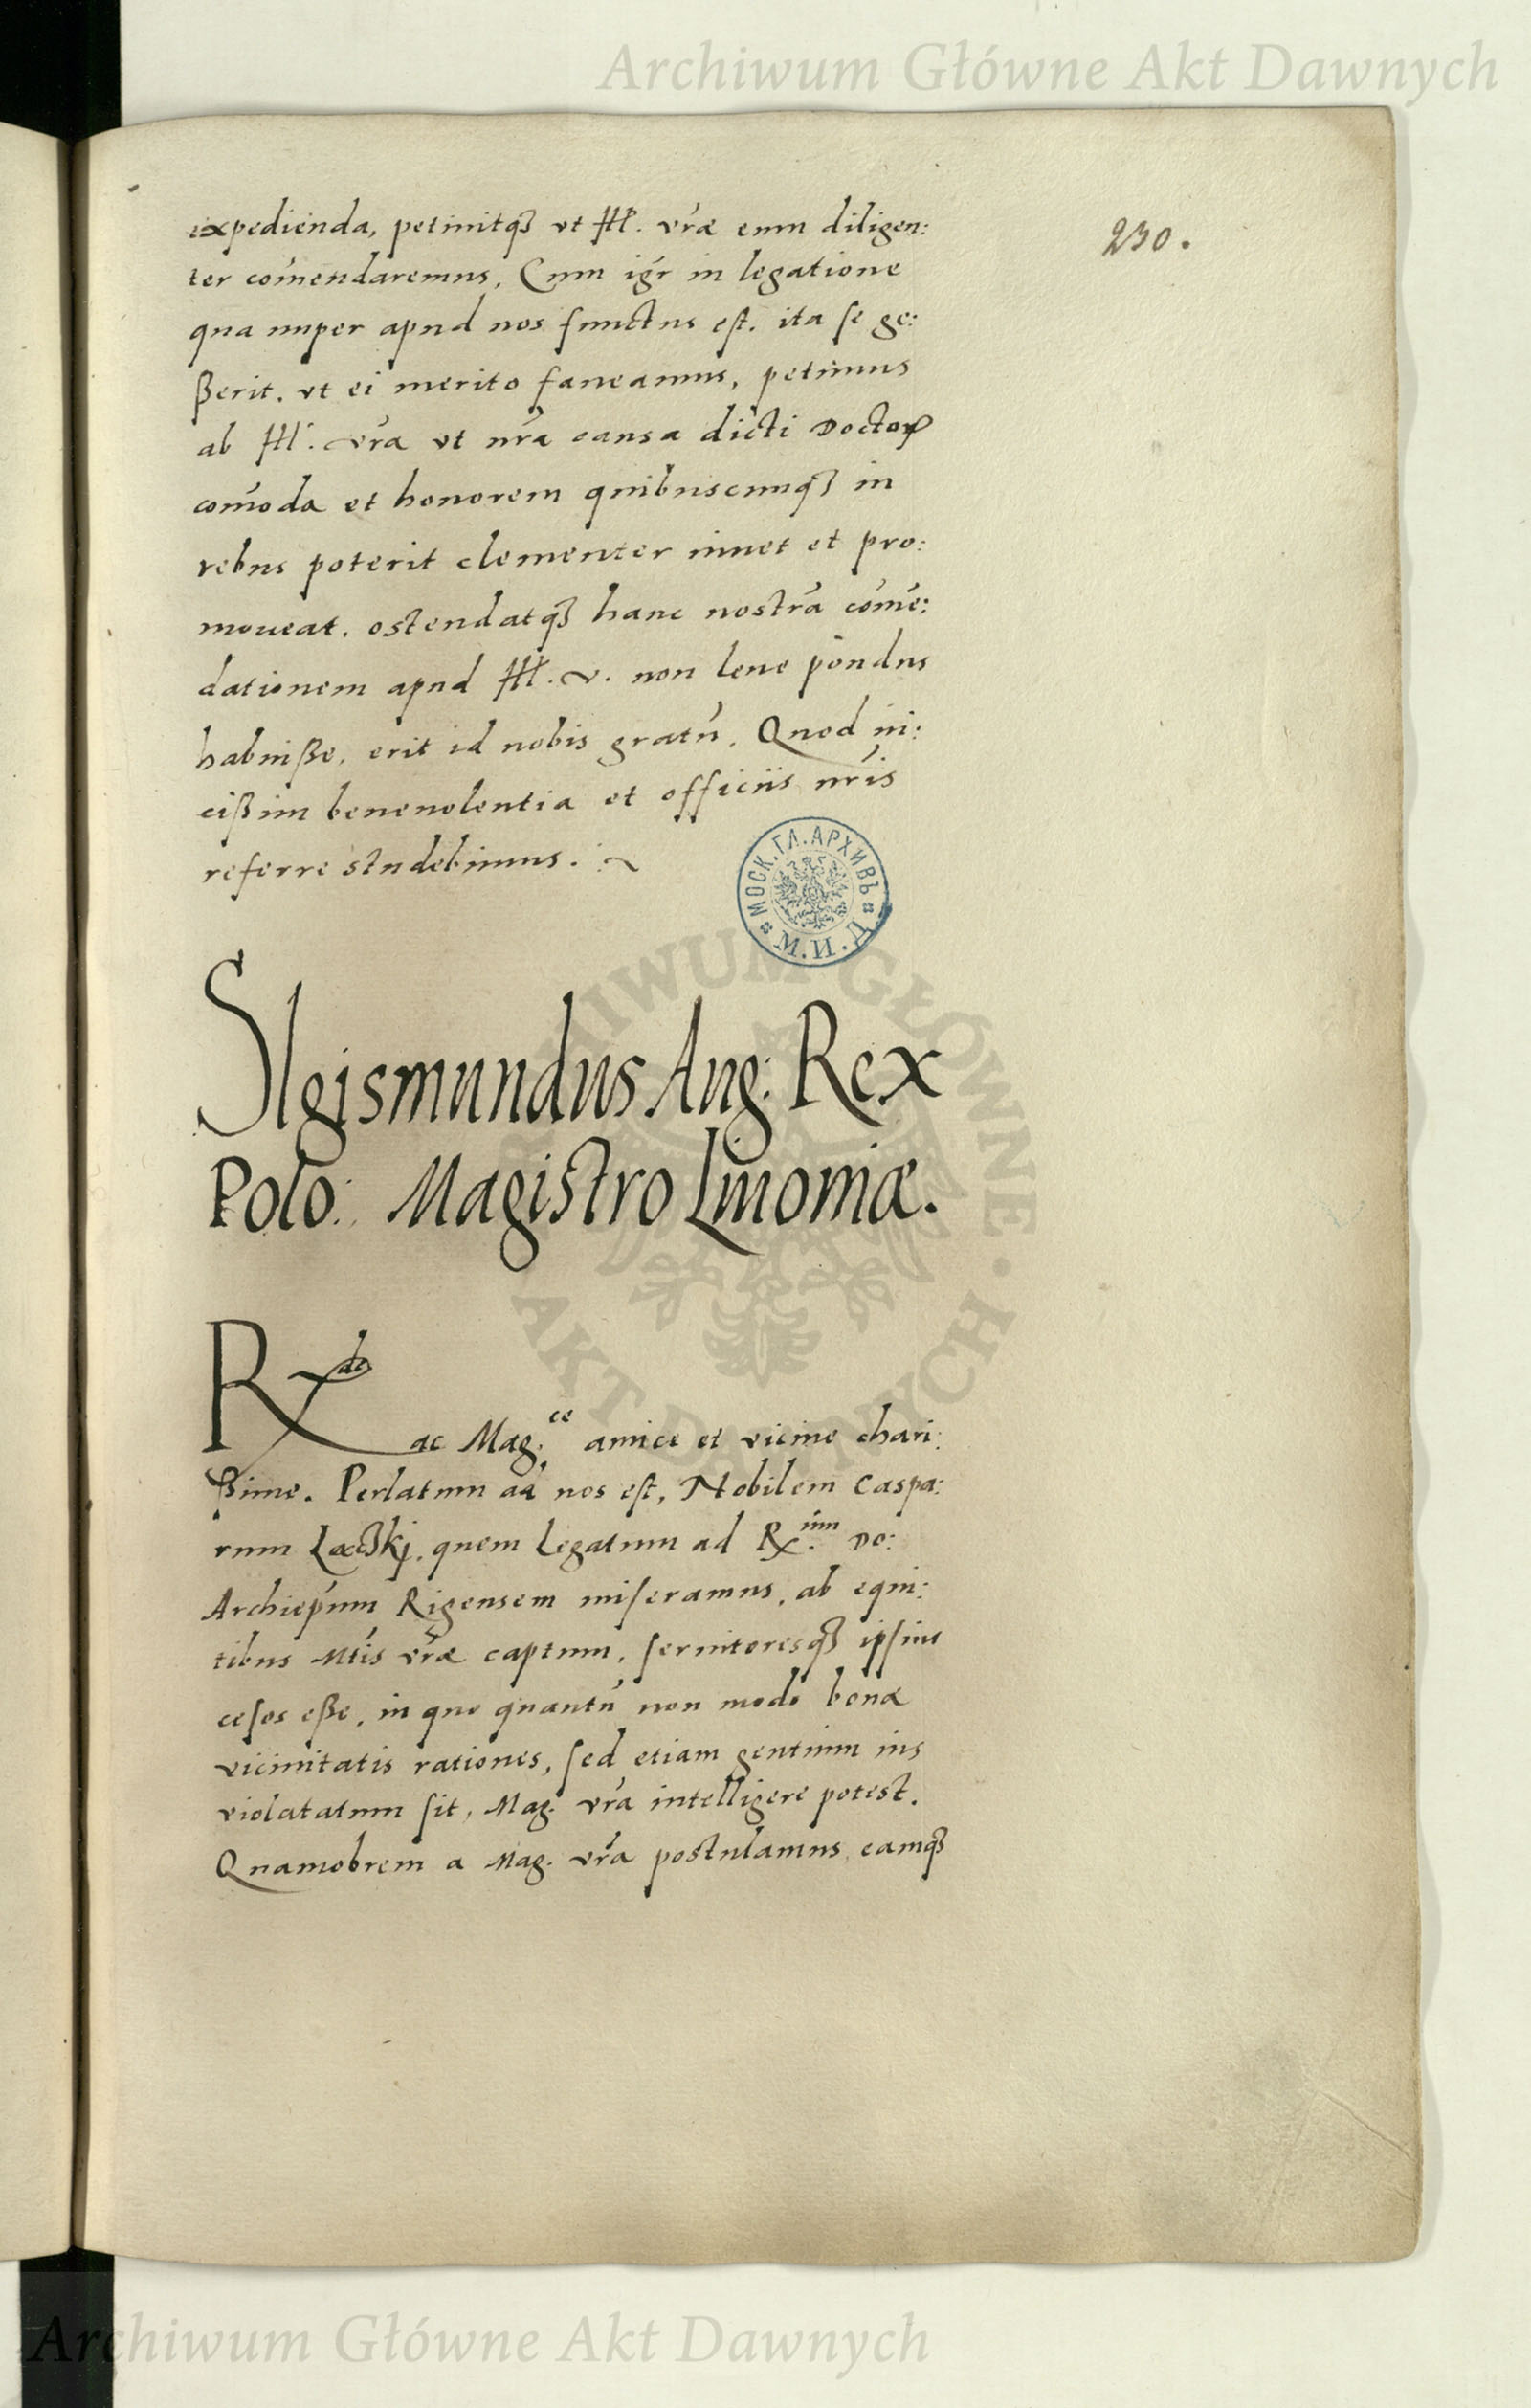 Archiwum Główne Akt Dawnych
230.
expedienda, petiuitq3 vt Ill. vrãe eum diligen:
ter cõmendaremus, Cum igr̃ in legatione
qua nuper apud nos functus est. ita se ge:
ßerit. vt ei merito faueamus, petimus
ab Ill. vrã vt nrã causa dicti Doctoꝝ
cõmoda et honorem quibuscunq3 in
rebus poterit clementer iuuet et pro:
moueat. ostendatq3 hanc nostrã cõmẽ:
dationem apud Ill. v. non leue pondus
habuiße, erit id nobis gratũ. Quod ui:
cißim beneuolentia et officiis nrĩs
referre studebimus.
МОСК. ГЛ. АРХИВЪ М. И. Д.
Sigismundus Aug: Rex
Polo: Magistro Liuoniæ.
Rx^de ac Mag.^ce amice et vicine chari:
ßime. Perlatum ad nos est, Nobilem Caspa:
rum Lącskj. quem Legatum ad Rx.^mum Do:
Archiep̃um Rigensem miseramus, ab equi:
tibus Mtĩs vrãe captum, seruitoresq3 ipsius
cesos eße, in quo quantũ non modo bonæ
vicinitatis rationes, sed etiam gentium ius
violatatum sit, Mag. vrã intelligere potest.
Quamobrem a Mag. vrã postulamus eamq3
ARCHIWUM GŁÓWNE AKT DAWNYCH
Archiwum Główne Akt Dawnych